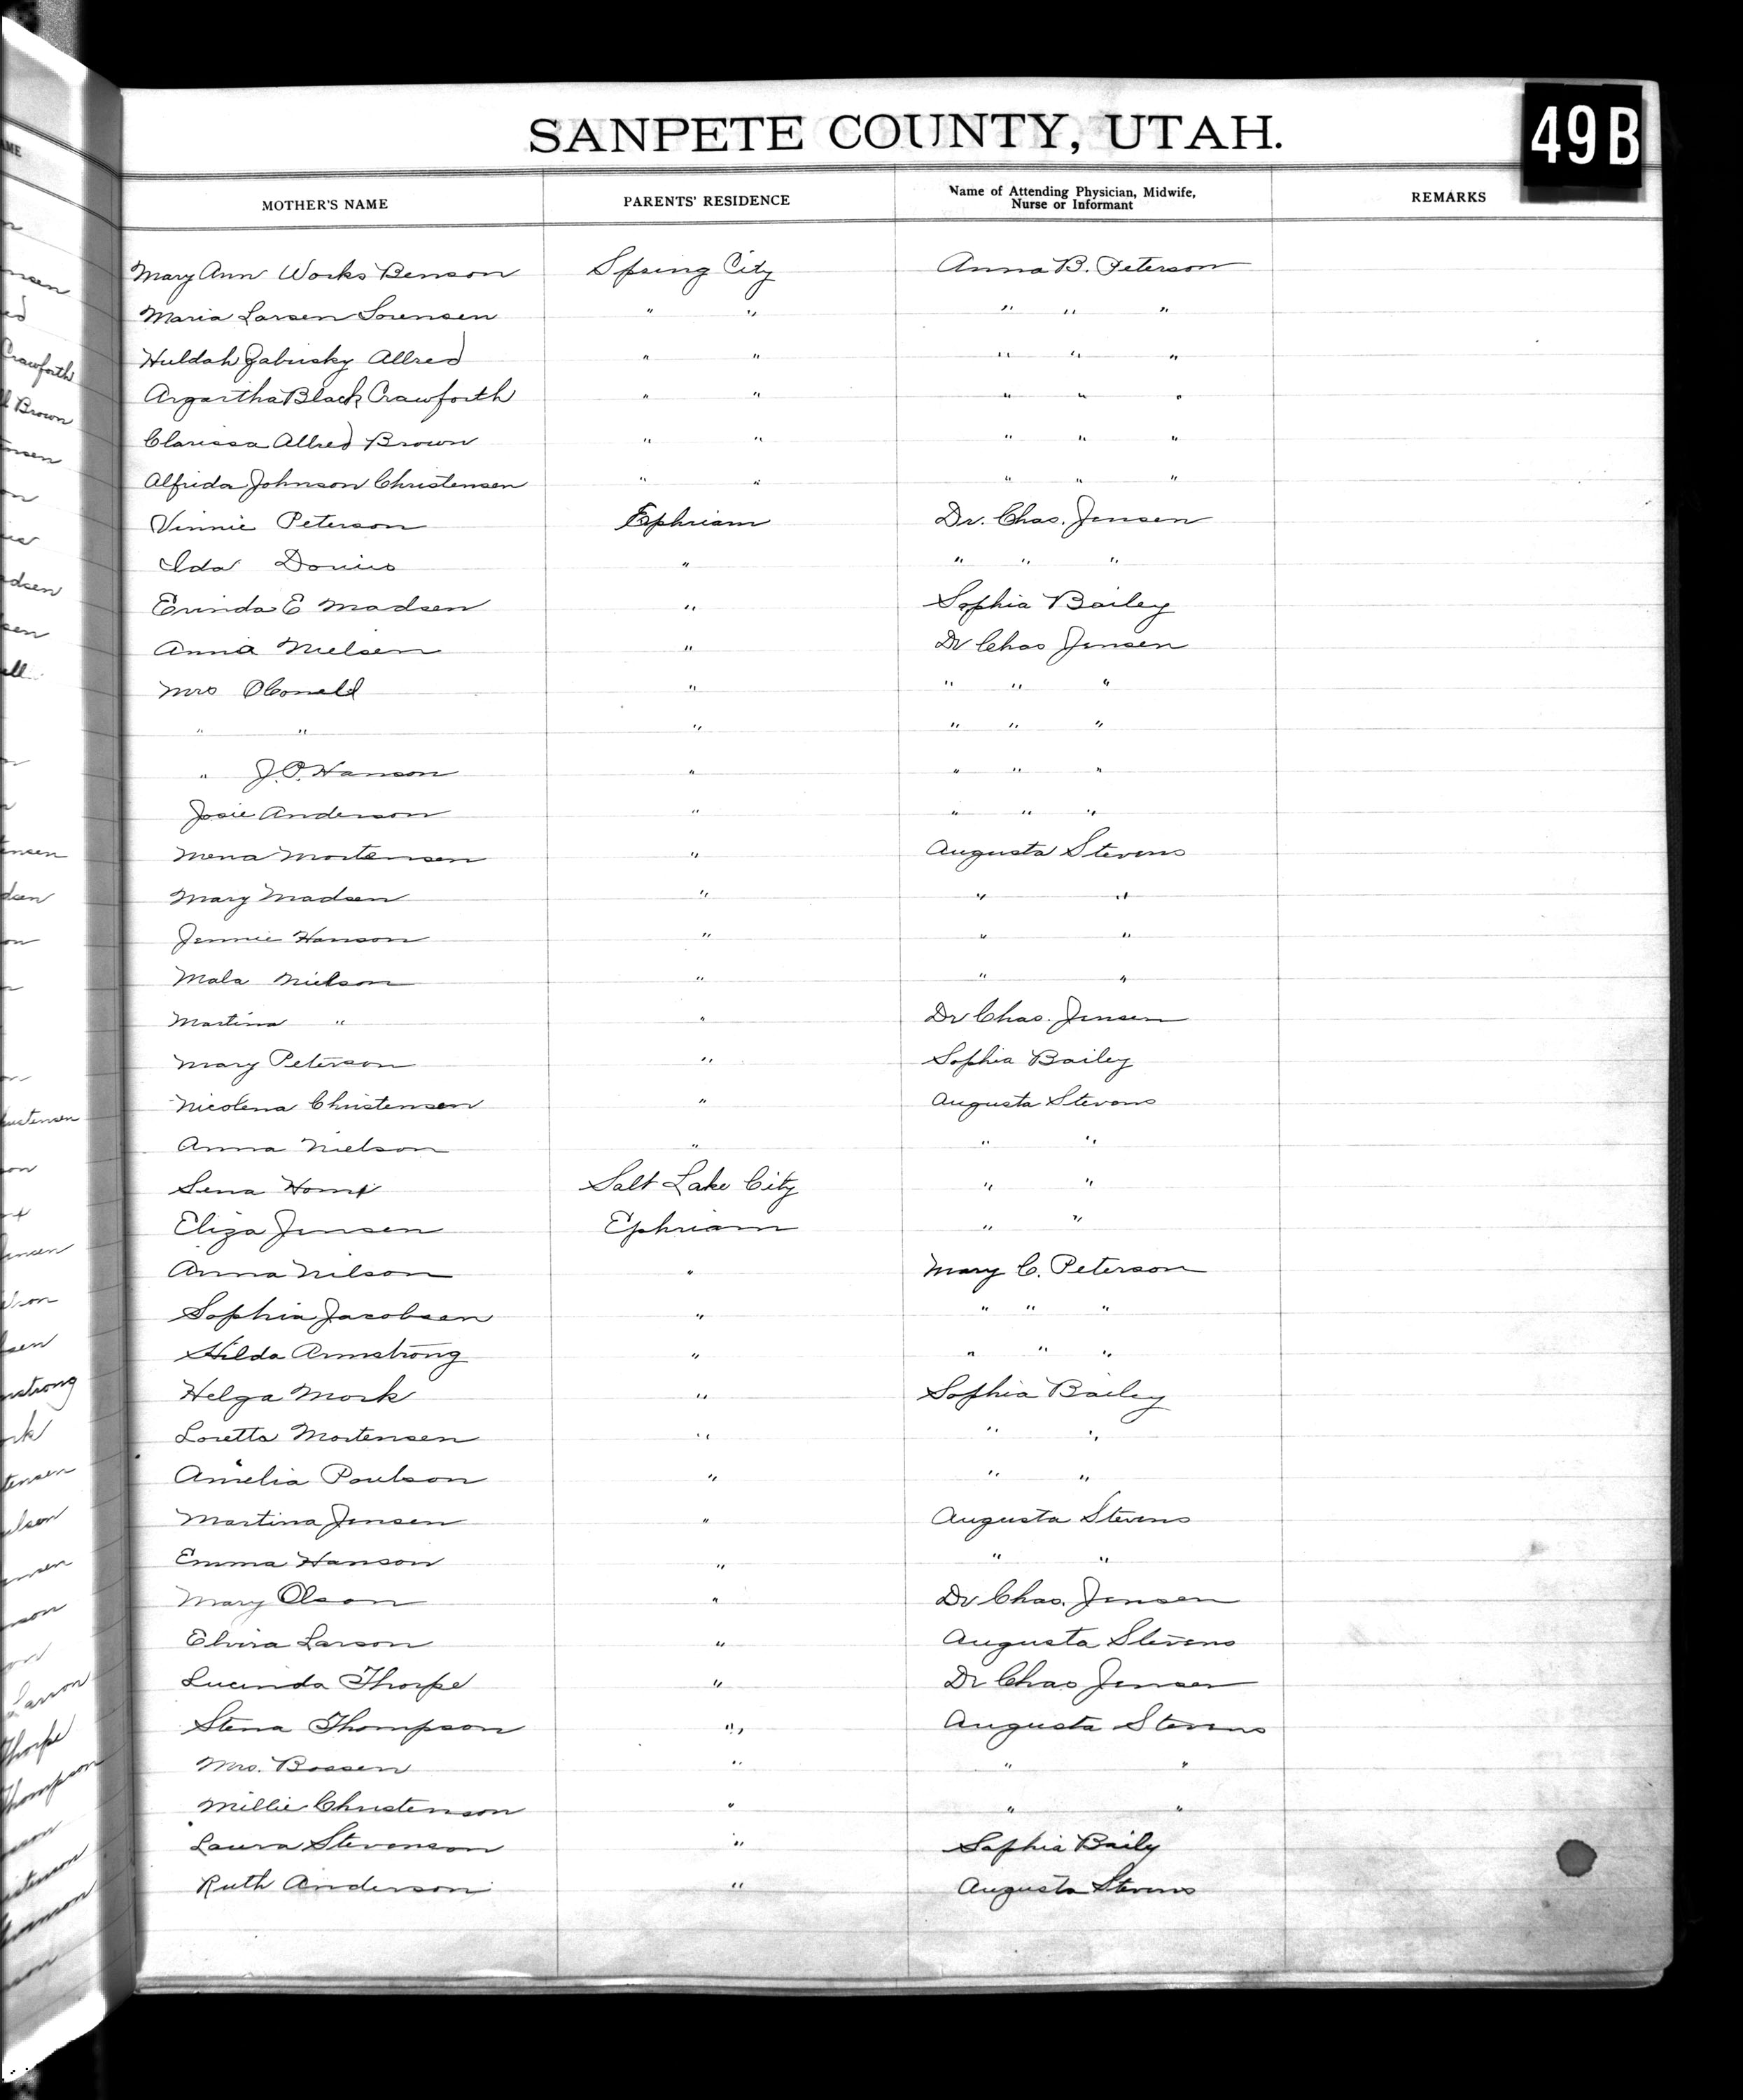 SANPETE COUNTY, UTAH.
49B
MOTHER'S NAME PARENTS' RESIDENCE Name of Attending Physician, Midwife, Nurse or Informant REMARKS
Mary Ann Works Benson Spring City Anna B. Peterson
Maria Larsen Sorensen " " " " "
Huldah Zabrisky Allred " " " " "
Argartha Black Crawforth " " " " "
Clarissa Allred Brown " " " " "
Alfrida Johnson Christensen " " " " "
Vinnie Peterson Ephriam Dr. Chas. Jensen
Ida Dorius " " " "
Erinda E Madsen " Sophia Bailey
Anna Nielsen " Dr Chas Jensen
Mrs OConald " " " "
" " " " " "
" J.P. Hanson " " " "
Josie Anderson " " " "
Mena Mortensen " Augusta Stevens
Mary Madsen " " "
Jennie Hanson " " "
Mala Nielson " " "
Martina " " Dr Chas. Jensen
Mary Peterson " Sophia Bailey
Nicolena Christensen " Augusta Stevens
Anna Nielson " " "
Sena Salt Lake City " "
Eliza Jensen Ephriam " "
Anna Nilson " Mary C. Peterson
Sophia Jacobsen " " " "
Hilda Armstrong " " " "
Helga Mork " Sophia Bailey
Loretta Mortensen " " "
Amelia Poulson " " "
Martina Jensen " Augusta Stevens
Emma Hanson " " "
Mary Olson " Dr Chas. Jensen
Elvira Larson " Augusta Stevens
Lucinda Thorpe " Dr Chas Jensen
Stena Thompson " Augusta Stevens
Mrs. Bossen " " "
Millie Christenson " " "
Laura Stevenson " Sophia Baily
Ruth Anderson " Augusta Stevens